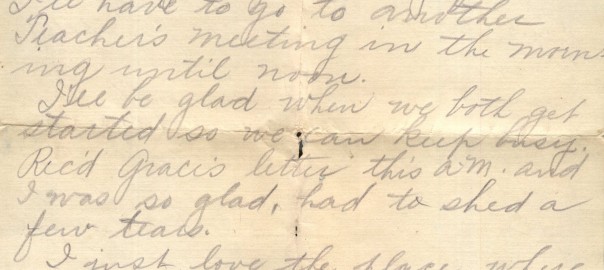 I'll have to go to another
Teacher's meeting in the morn-
ing until noon.
I'll be glad when we both get
started so we can keep busy.
Rec'd Grace's letter this a.m. and
I was so glad, had to shed a
few tears.
I just love the place where